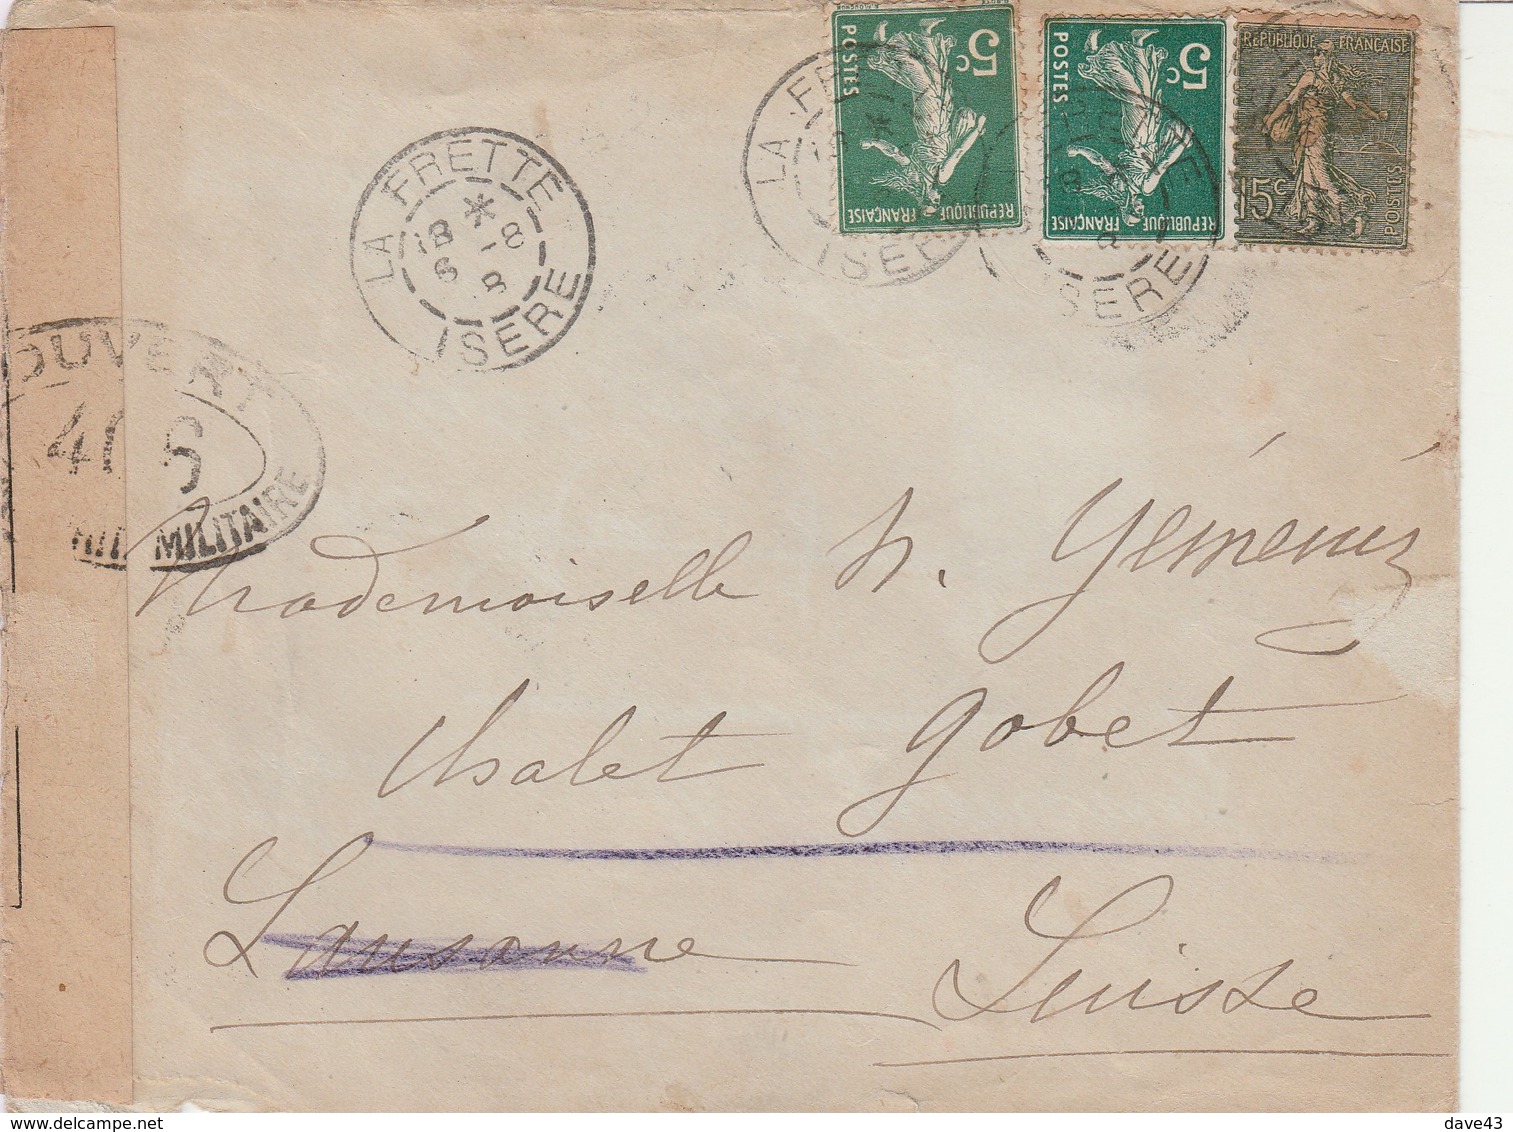 5c
POSTES
REPUBLIQUE FRANÇAISE
5c
POSTES
REPUBLIQUE FRANÇAISE
REPUBLIQUE FRANÇAISE
15c
POSTES
LA FRETTE
18 * 8
6 - 8
ISERE
LA FR
ISERE
TTE
ISERE
OUVERT
MILITAIRE
Mademoiselle N. Yéméniz
Chalet Gobet
Lausanne
Suisse
delcampe.net
dave43